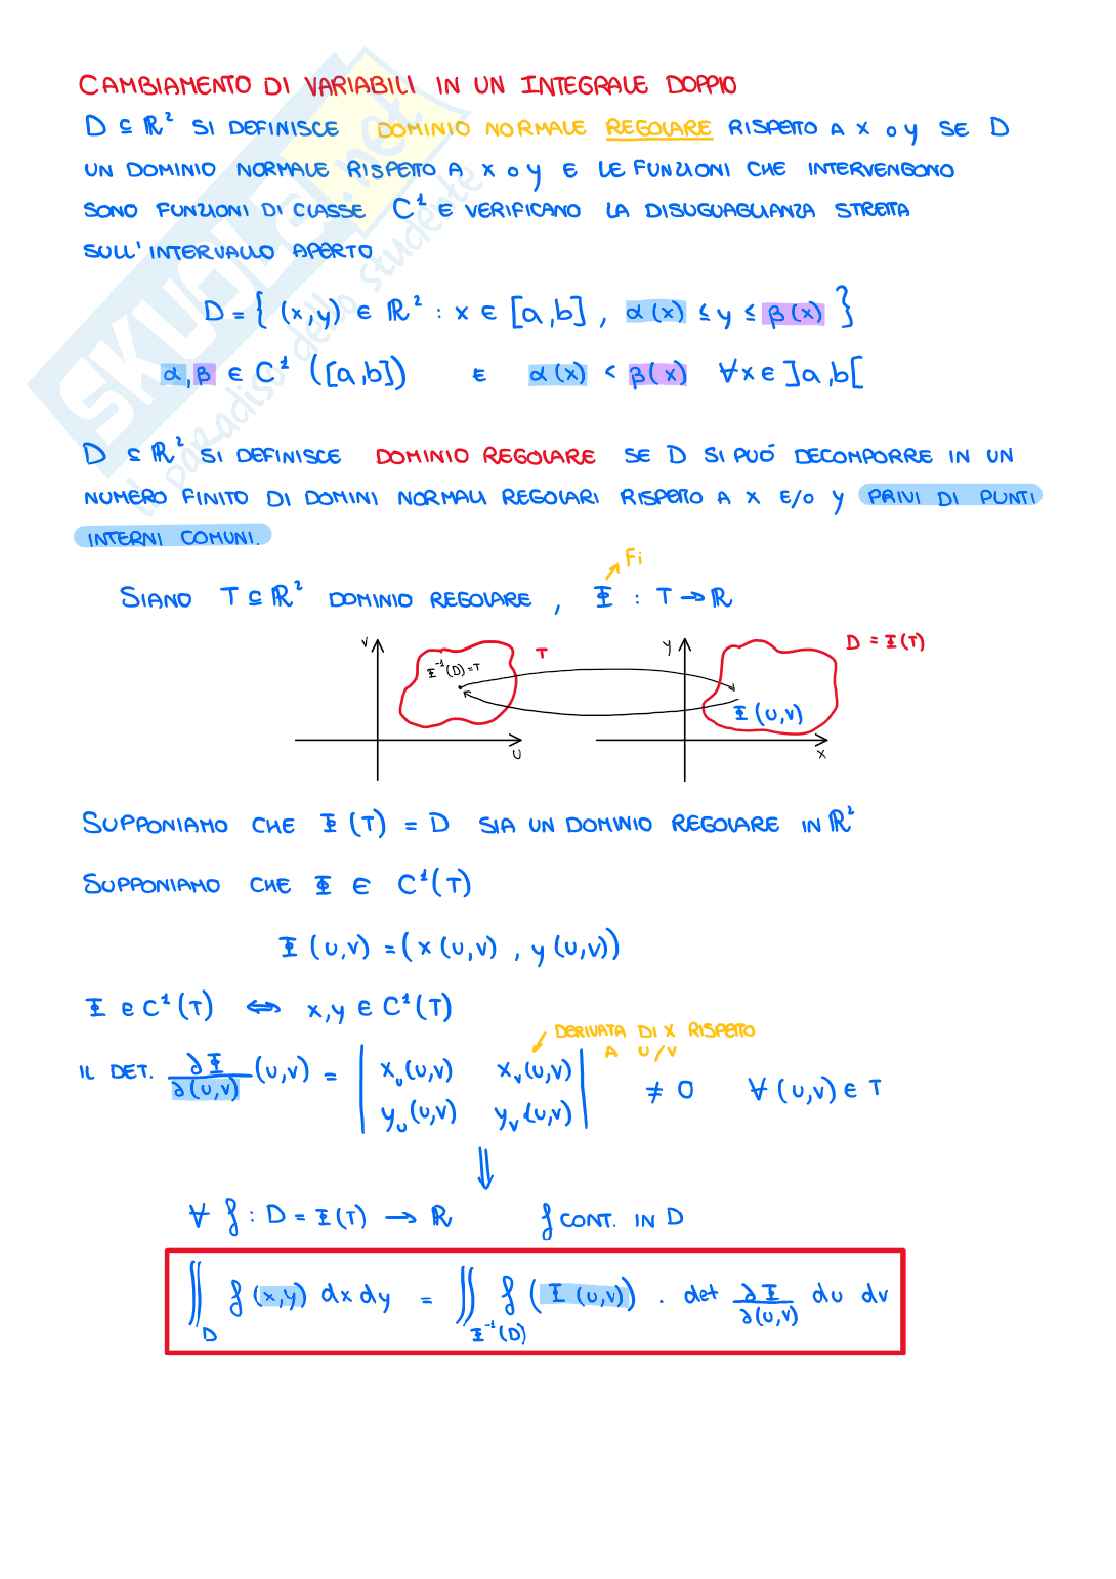 CAMBIAMENTO DI VARIABILI IN UN INTEGRALE DOPPIO
D ⊆ ℝ² SI DEFINISCE DOMINIO NORMALE REGOLARE RISPETTO A X O Y SE D
UN DOMINIO NORMALE RISPETTO A X O Y E LE FUNZIONI CHE INTERVENGONO
SONO FUNZIONI DI CLASSE C¹ E VERIFICANO LA DISUGUAGLIANZA STRETTA
SULL'INTERVALLO APERTO
D = { (x,y) ∈ ℝ² : x ∈ [a,b] , α(x) ≤ y ≤ β(x) }
α, β ∈ C¹ ([a,b]) E α(x) < β(x) ∀x ∈ ]a,b[
D ⊆ ℝ² SI DEFINISCE DOMINIO REGOLARE SE D SI PUÓ DECOMPORRE IN UN
NUMERO FINITO DI DOMINI NORMALI REGOLARI RISPETTO A X E/O Y PRIVI DI PUNTI
INTERNI COMUNI.
Fi
SIANO T ⊆ ℝ² DOMINIO REGOLARE , Φ : T → ℝ
V
Φ⁻¹(D) = T
T
U
y
D = Φ(T)
Φ(U,V)
x
SUPPONIAMO CHE Φ(T) = D SIA UN DOMINIO REGOLARE IN ℝ²
SUPPONIAMO CHE Φ ∈ C¹(T)
Φ(U,V) = (x(U,V) , y(U,V))
Φ ∈ C¹(T) ⟺ x,y ∈ C¹(T)
DERIVATA DI X RISPETTO
A U/V
IL DET. ∂Φ/∂(U,V) (U,V) = | x_u(U,V) x_v(U,V) |
| y_u(U,V) y_v(U,V) | ≠ 0 ∀(U,V) ∈ T
⇓
∀ f : D = Φ(T) → ℝ f CONT. IN D
∬_D f(x,y) dx dy = ∬_Φ⁻¹(D) f(Φ(U,V)) · det ∂Φ/∂(U,V) du dv
SKUOLA.net
il paradiso dello studente